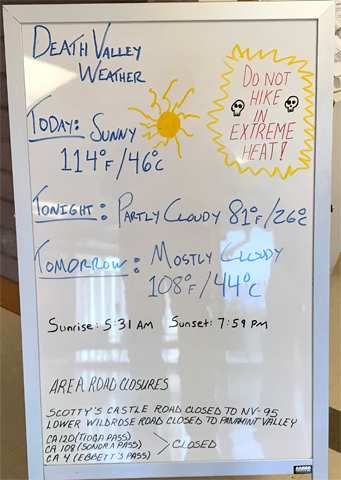 DEATH VALLEY
WEATHER
DO NOT
HIKE
IN
EXTREME
HEAT!
TODAY: SUNNY
114°F/46°C
TONIGHT: PARTLY CLOUDY 81°F/26°C
TOMORROW: MOSTLY CLOUDY
108°F/44°C
Sunrise: 5:31 AM Sunset: 7:59 PM
AREA ROAD CLOSURES
SCOTTY'S CASTLE ROAD CLOSED TO NV-95
LOWER WILDROSE ROAD CLOSED TO PANAMINT VALLEY
CA 120 (TIOGA PASS)
CA 108 (SONORA PASS) > CLOSED
CA 4 (EBBETT'S PASS)